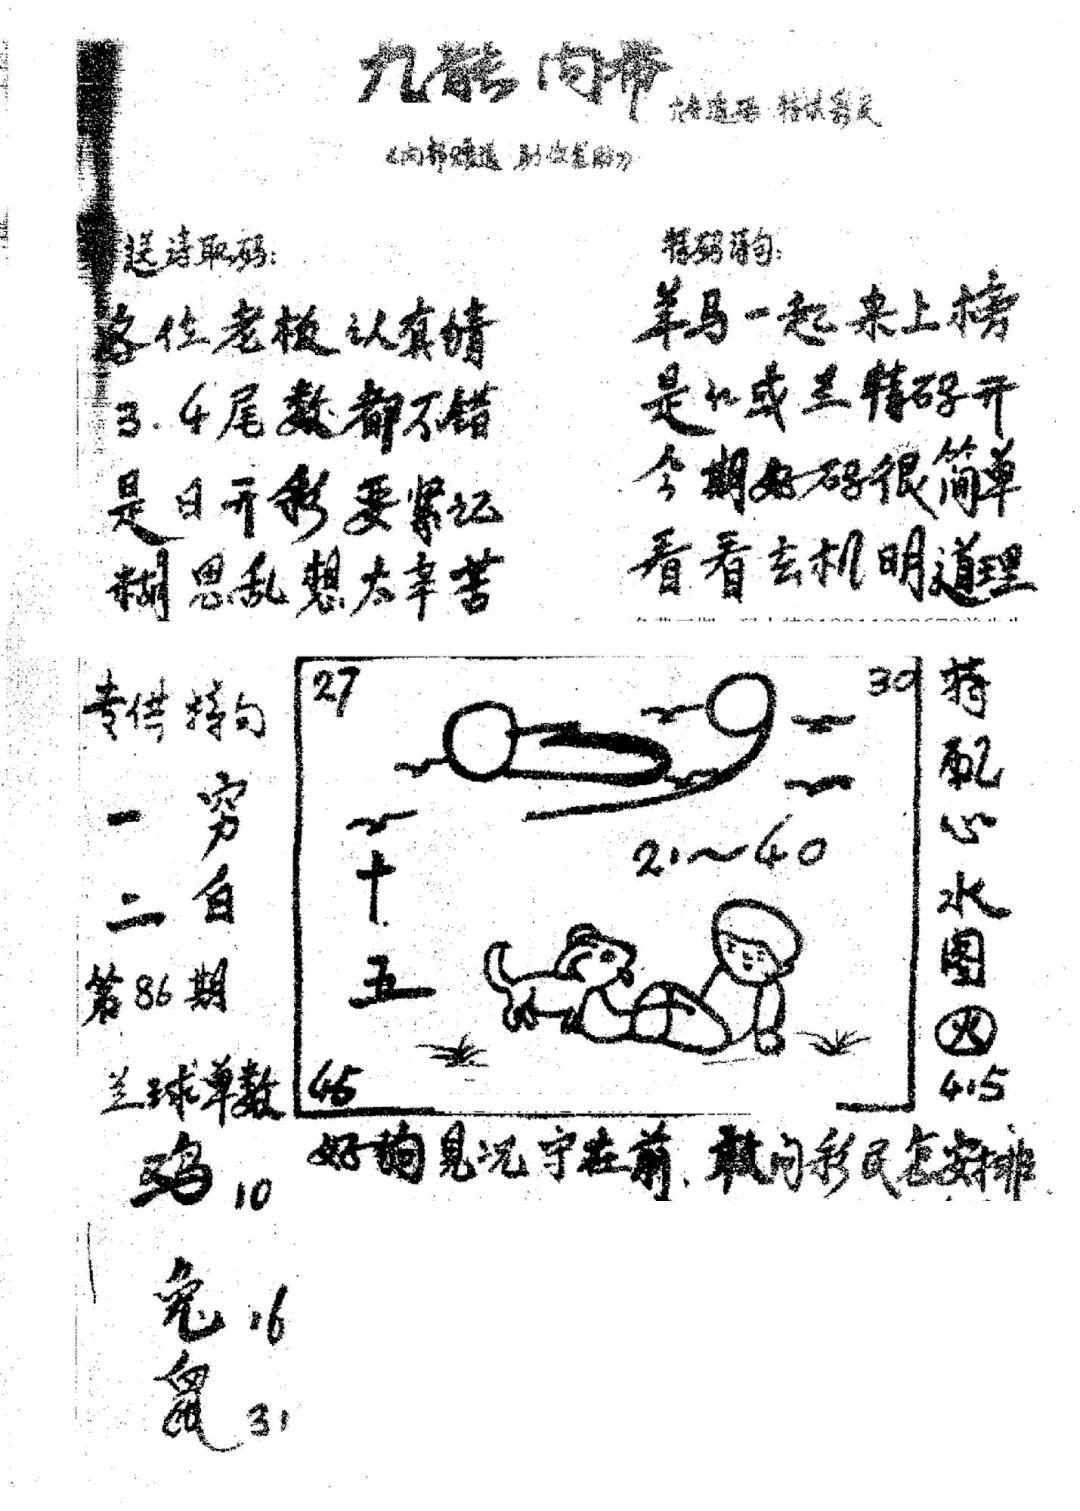 九龍内幕
送诗取码:
各位老板认真猜
3.4尾数都不错
是日开彩要紧记
糊思乱想太辛苦
特码诗句:
羊马一起来上榜
是红或兰特码开
今期好码很简单
看看玄机明道理
专供特句
一穷
二白
第86期
兰球单数
鸡10
兔16
鼠31
27
30
21~40
十
五
45
特配心水图
火
4.5
好狗见况守在前、敢问彩民怎安排